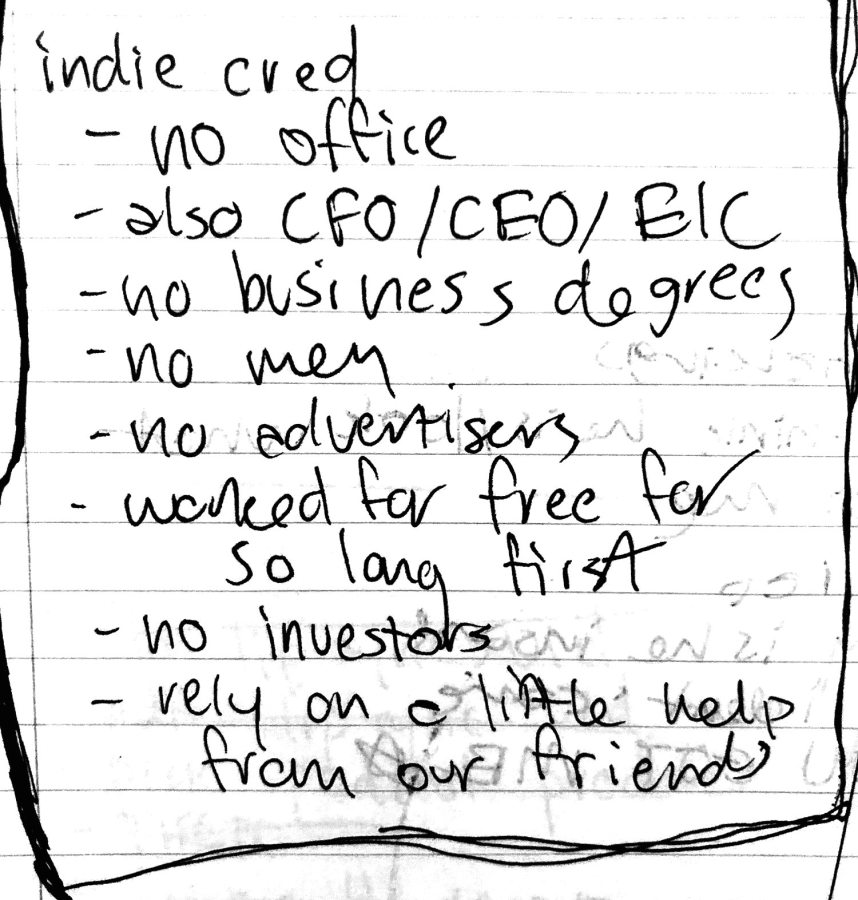 indie cred
- no office
- also CFO/CEO/EIC
- no business degrees
- no men
- no advertisers
- worked for free for
so long first
- no investors
- rely on a little help
from our friends